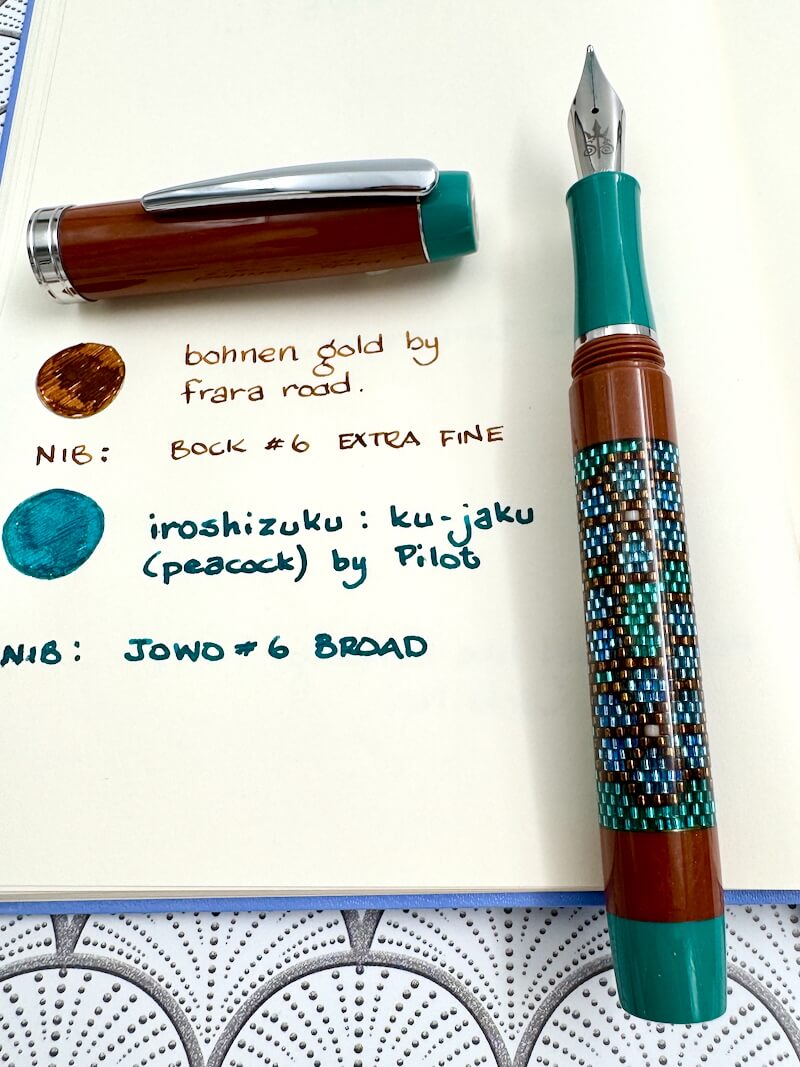 bohnen gold by
frara road.
NIB: BOCK #6 EXTRA FINE
iroshizuku : ku-jaku
(peacock) by Pilot
NIB: JOWO #6 BROAD